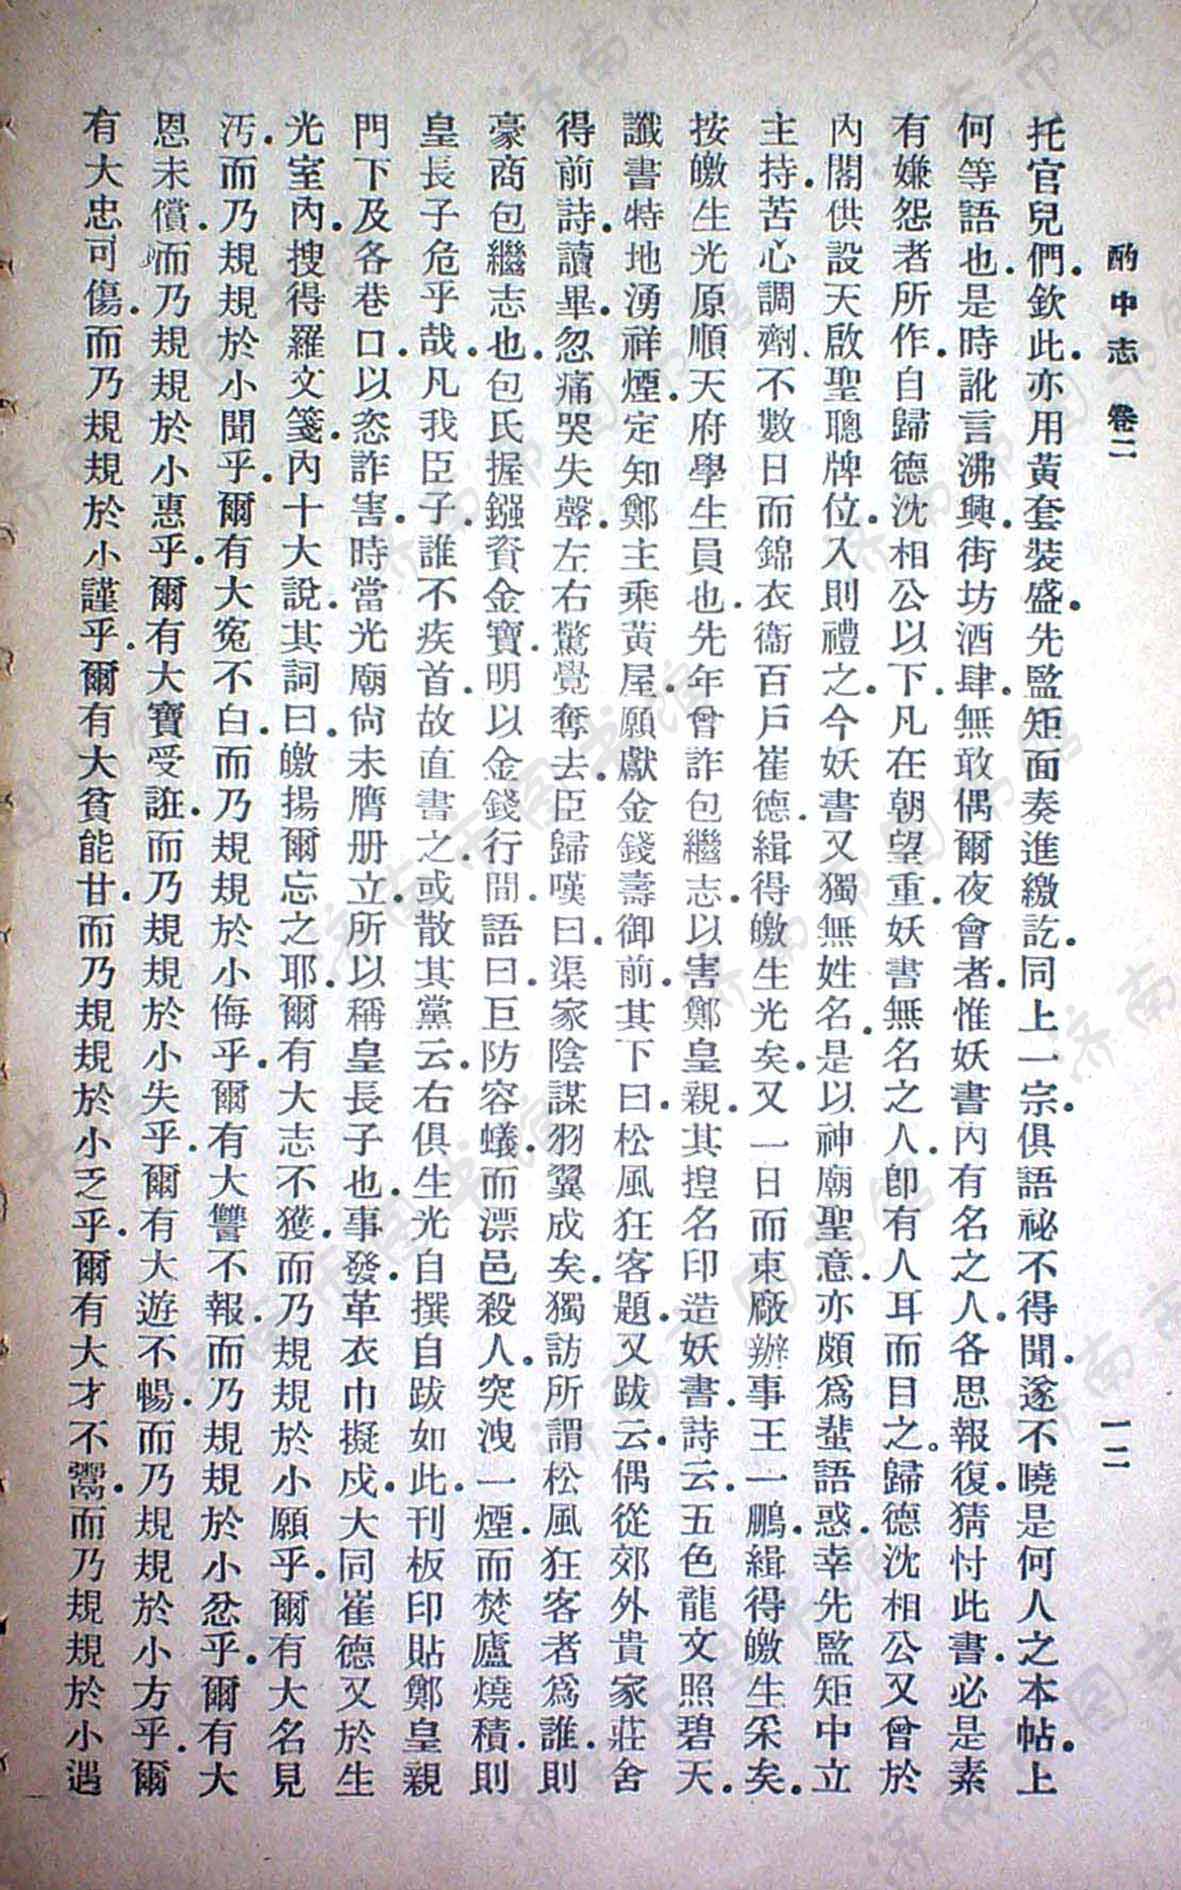 酌中志 卷二 一二
托官兒們.欽此.亦用黃套裝盛.先監矩面奏進繳訖.同上一宗.俱語祕不得聞.遂不曉是何人之本帖.上
何等語也.是時訛言沸興.街坊酒肆.無敢偶爾夜會者.惟妖書內有名之人.各思報復.猜忖此書.必是素
有嫌怨者所作.自歸德沈相公以下.凡在朝望重.妖書無名之人.卽有人耳而目之。歸德沈相公又曾於
內閣供設天啟聖聰牌位.入則禮之.今妖書又獨無姓名.是以神廟聖意.亦頗爲蜚語惑.幸先監矩中立
主持.苦心調劑、不數日而錦衣衞百戶崔德.緝得皦生光矣.又一日而東廠辦事王一鵬.緝得皦生采矣.
按皦生光原順天府學生員也.先年曾詐包繼志.以害鄭皇親.其揑名印造妖書.詩云.五色龍文照碧天.
讖書特地湧祥煙.定知鄭主乘黃屋.願獻金錢壽御前.其下曰.松風狂客題.又跋云.偶從郊外貴家莊舍
得前詩.讀畢.忽痛哭失聲.左右驚覺奪去.臣歸嘆曰.渠家陰謀.羽翼成矣.獨訪所謂松風狂客者爲誰.則
豪商包繼志也.包氏握鏹資金寶.明以金錢行間.語曰.巨防容蟻.而漂邑殺人.突洩一煙.而焚廬燒積.則
皇長子危乎哉.凡我臣子.誰不疾首.故直書之.或散其黨云.右俱生光自撰自跋如此.刊板印貼鄭皇親
門下及各巷口.以恣詐害.時當光廟尙未膺册立.所以稱皇長子也.事發.革衣巾擬戍.大同崔德又於生
光室內.搜得羅文箋.內十大說.其詞曰.皦揚爾忘之耶.爾有大志不獲.而乃規規於小願乎.爾有大名見
汚.而乃規規於小聞乎.爾有大冤不白.而乃規規於小侮乎.爾有大讐不報.而乃規規於小忿乎.爾有大
恩未償.而乃規規於小惠乎.爾有大寶受誑.而乃規規於小失乎.爾有大遊不暢.而乃規規於小方乎.爾
有大忠可傷.而乃規規於小謹乎.爾有大貧能甘.而乃規規於小乏乎.爾有大才不鬻.而乃規規於小遇